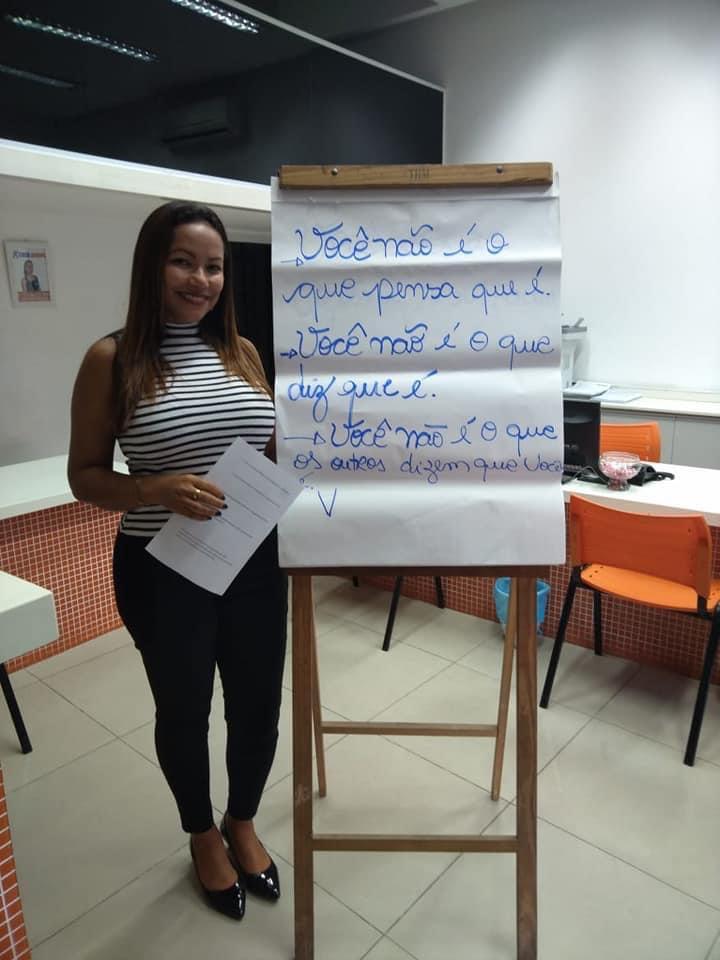 → Você não é o
que pensa que é.
→ Você não é o que
diz que é.
→ Você não é o que
os outros dizem que você